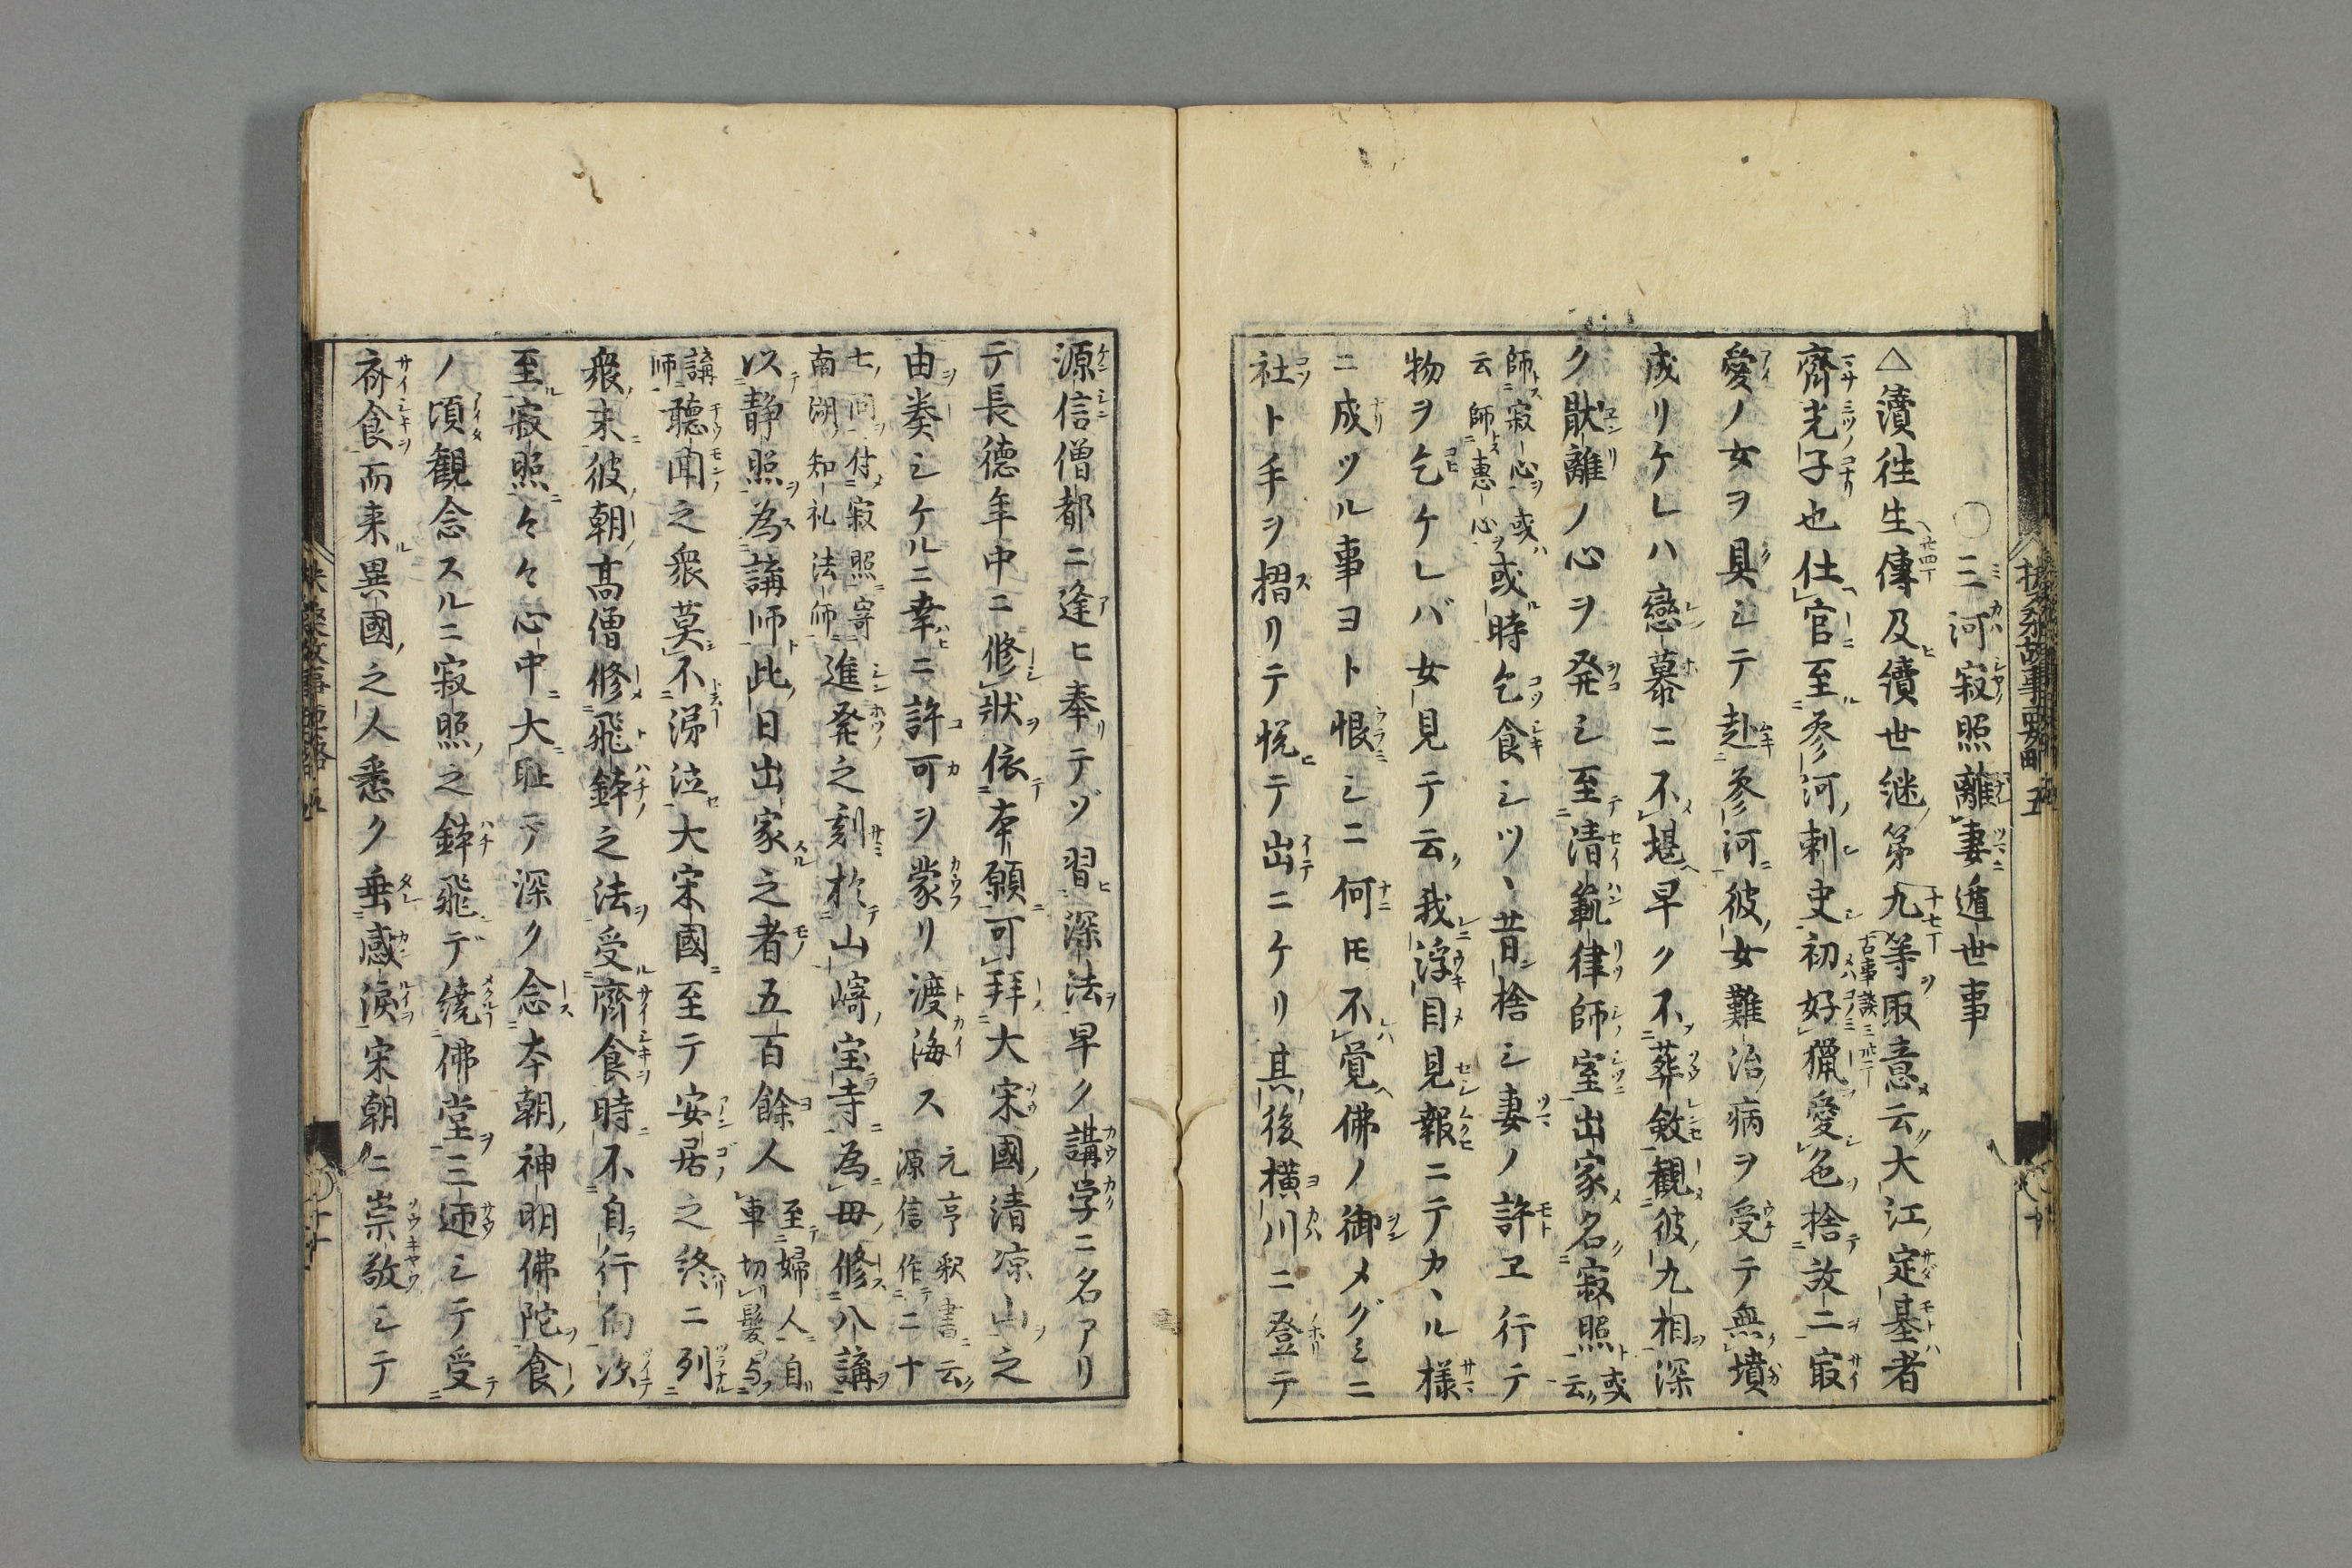 〇三河寂照離妻遁世事
△續往生傳及續世継第九等取意云大江定基者
齊光子也仕官至参河刺史初好猟愛色捨故ニ二寂
愛ノ女ヲ具シテ赴参河彼女難治病ヲ受テ無墳
成リケレハ戀慕ニ不堪早ク不葬斂観彼九相深
ク猒離ノ心ヲ発シ至清範律師室出家名寂照或云
師寂心或云師惠心或時乞食シツヽ昔捨シ妻ノ許ヱ行テ
物ヲ乞ケレバ女見テ云我浮目見報ニテカヽル様
ニ成ツル事ヨト恨シニ何モ不覚佛ノ御メグミニ
社ト手ヲ摺リテ悦テ出ニケリ其後横川ニ登テ
源信僧都ニ逢ヒ奉テヅ習深法早ク講学ニ名アリ
テ長德年中ニ修狀依本願可拜大宋國清凉山之
由奏シケルニ幸ニ許可ヲ蒙リ渡海ス元亨釈書云源信作二十
七問付寂照寄南湖知礼法師進発之刻於山﨑宝寺為毋修八講
以静照為講師此日出家之者五百餘人至婦人自車切髪与
講師聽聞之衆莫不涕泣大宋國至テ安居之終ニ列
衆末彼朝高僧修飛鉢之法受齊食時不自行向次
至寂照々々心中大耻テ深ク念本朝神明佛陀食
ノ頃観念スルニ寂照之鉢飛デ繞佛堂三迊シテ受
斎食而来異國之人悉ク垂感涙宋朝ニ崇敬シテ